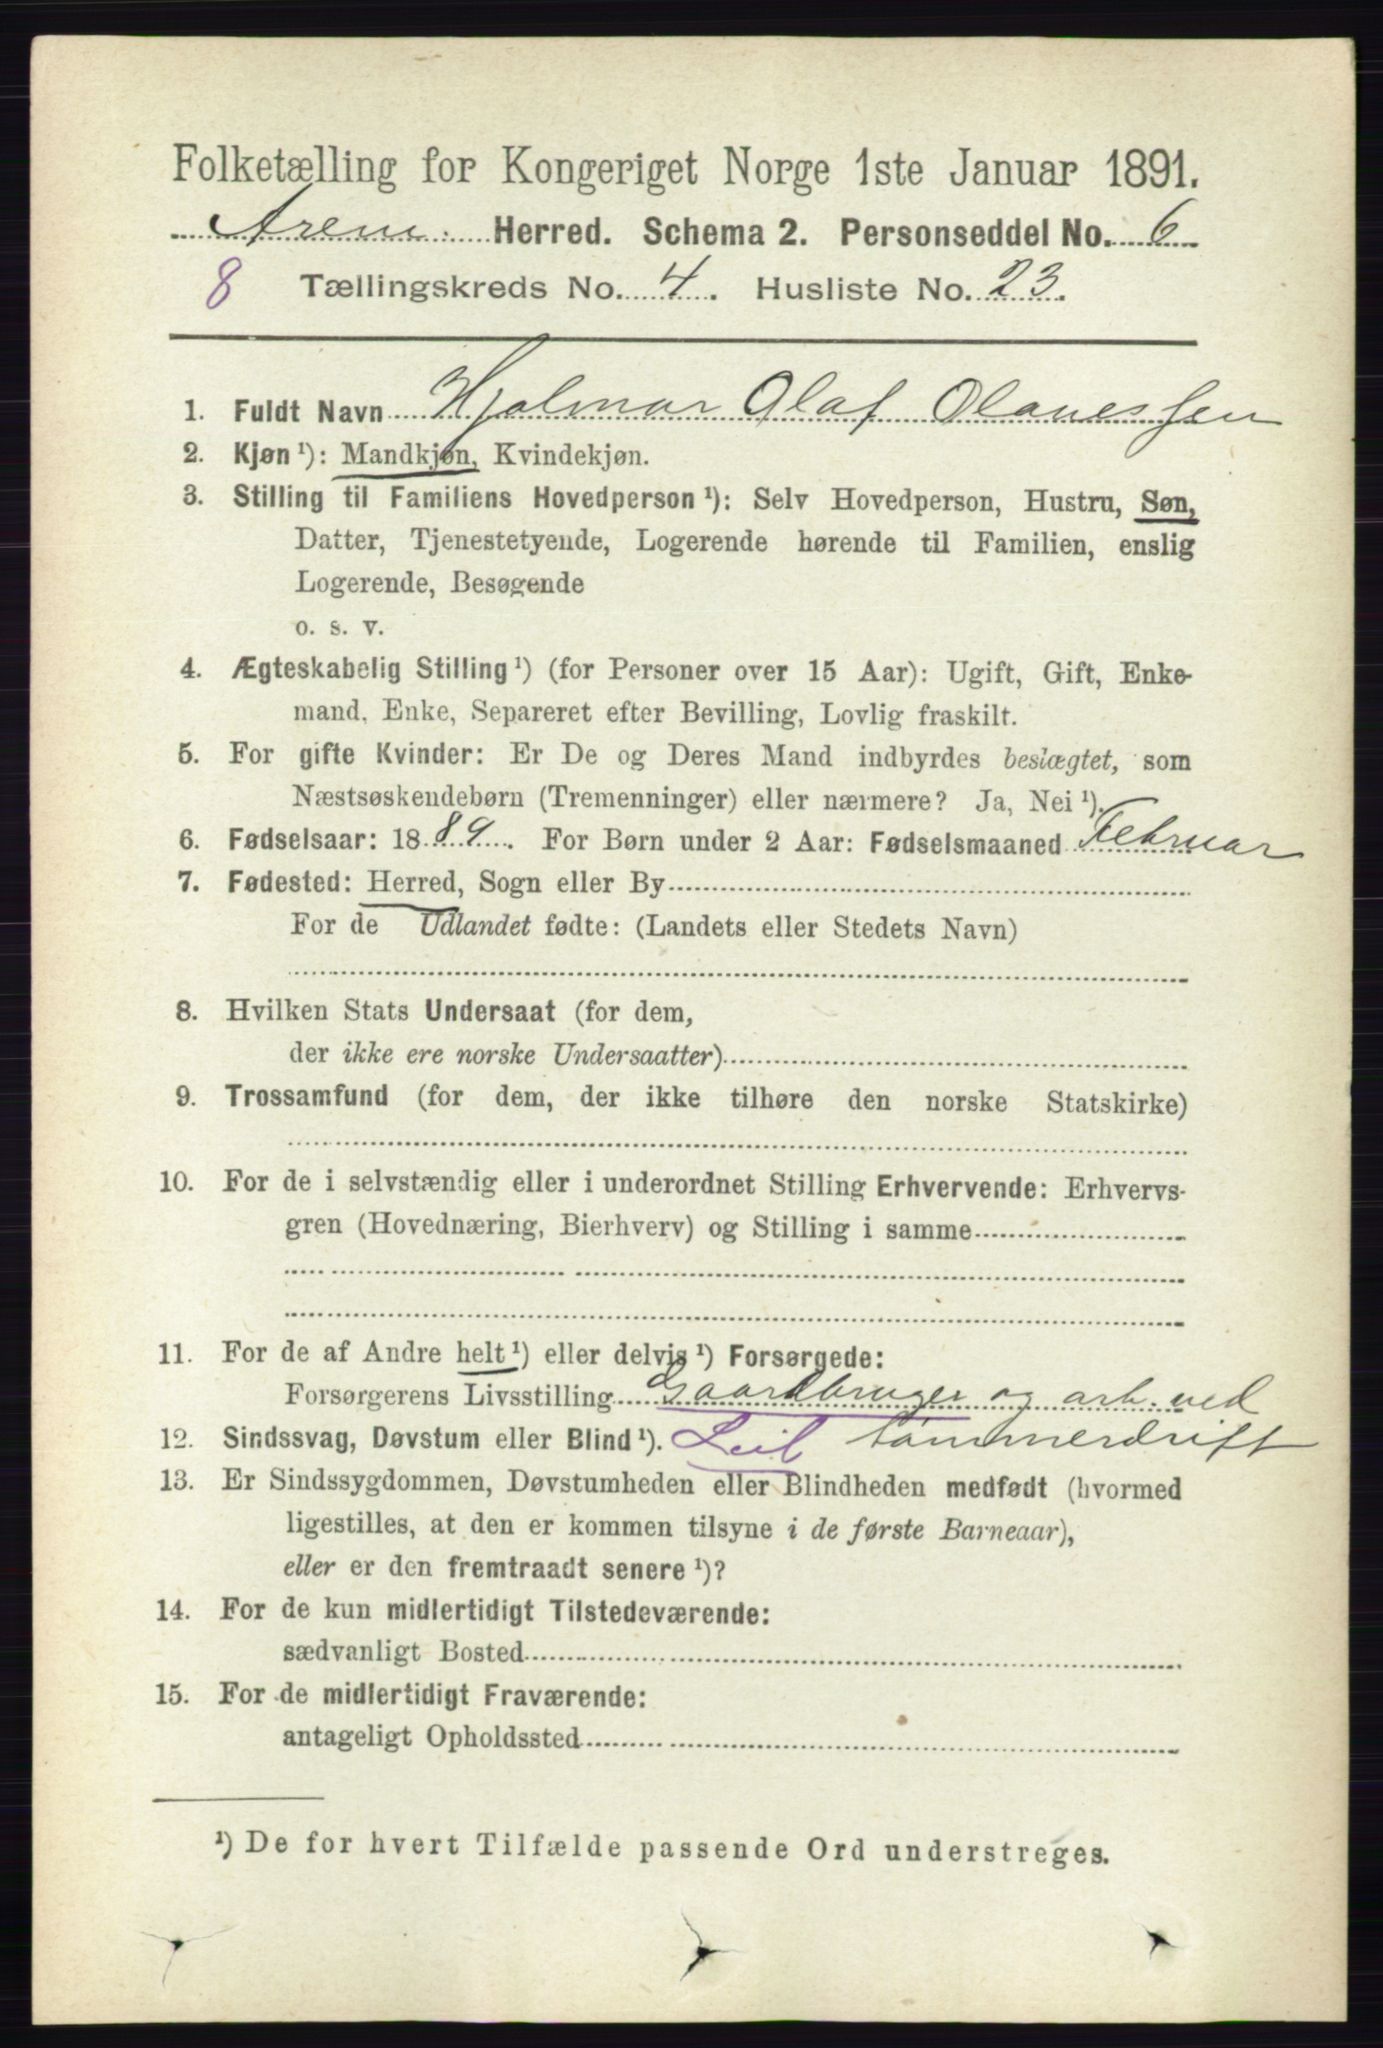 Folketælling for Kongeriget Norge 1ste Januar 1891.
Herred. Schema 2. Personseddel No. 6
8 Tællingskreds No. 4. Husliste No. 23.
1. Fuldt Navn Hjalmar Olaf Olanessen
2. Kjøn ¹): Mandkjøn, Kvindekjøn.
3. Stilling til Familiens Hovedperson ¹): Selv Hovedperson, Hustru, Søn,
Datter, Tjenestetyende, Logerende hørende til Familien, enslig
Logerende, Besøgende
o. s. v.
4. Ægteskabelig Stilling ¹) (for Personer over 15 Aar): Ugift, Gift, Enke-
mand, Enke, Separeret efter Bevilling, Lovlig fraskilt.
5. For gifte Kvinder: Er De og Deres Mand indbyrdes beslægtet, som
Næstsøskendebørn (Tremenninger) eller nærmere? Ja, Nei ¹).
6. Fødselsaar: 1889. For Børn under 2 Aar: Fødselsmaaned Februar
7. Fødested: Herred, Sogn eller By
For de Udlandet fødte: (Landets eller Stedets Navn)
8. Hvilken Stats Undersaat (for dem,
der ikke ere norske Undersaatter)
9. Trossamfund (for dem, der ikke tilhøre den norske Statskirke)
10. For de i selvstændig eller i underordnet Stilling Erhvervende: Erhvervs-
gren (Hovednæring, Bierhverv) og Stilling i samme
11. For de af Andre helt ¹) eller delvis ¹) Forsørgede:
Forsørgerens Livsstilling Gaardbruger og arb. ved
12. Sindssvag, Døvstum eller Blind ¹). Leil tømmerdrift
13. Er Sindssygdommen, Døvstumheden eller Blindheden medfødt (hvormed
ligestilles, at den er kommen tilsyne i de første Barneaar),
eller er den fremtraadt senere ¹)?
14. For de kun midlertidigt Tilstedeværende:
sædvanligt Bosted
15. For de midlertidigt Fraværende:
antageligt Opholdssted
¹) De for hvert Tilfælde passende Ord understreges.